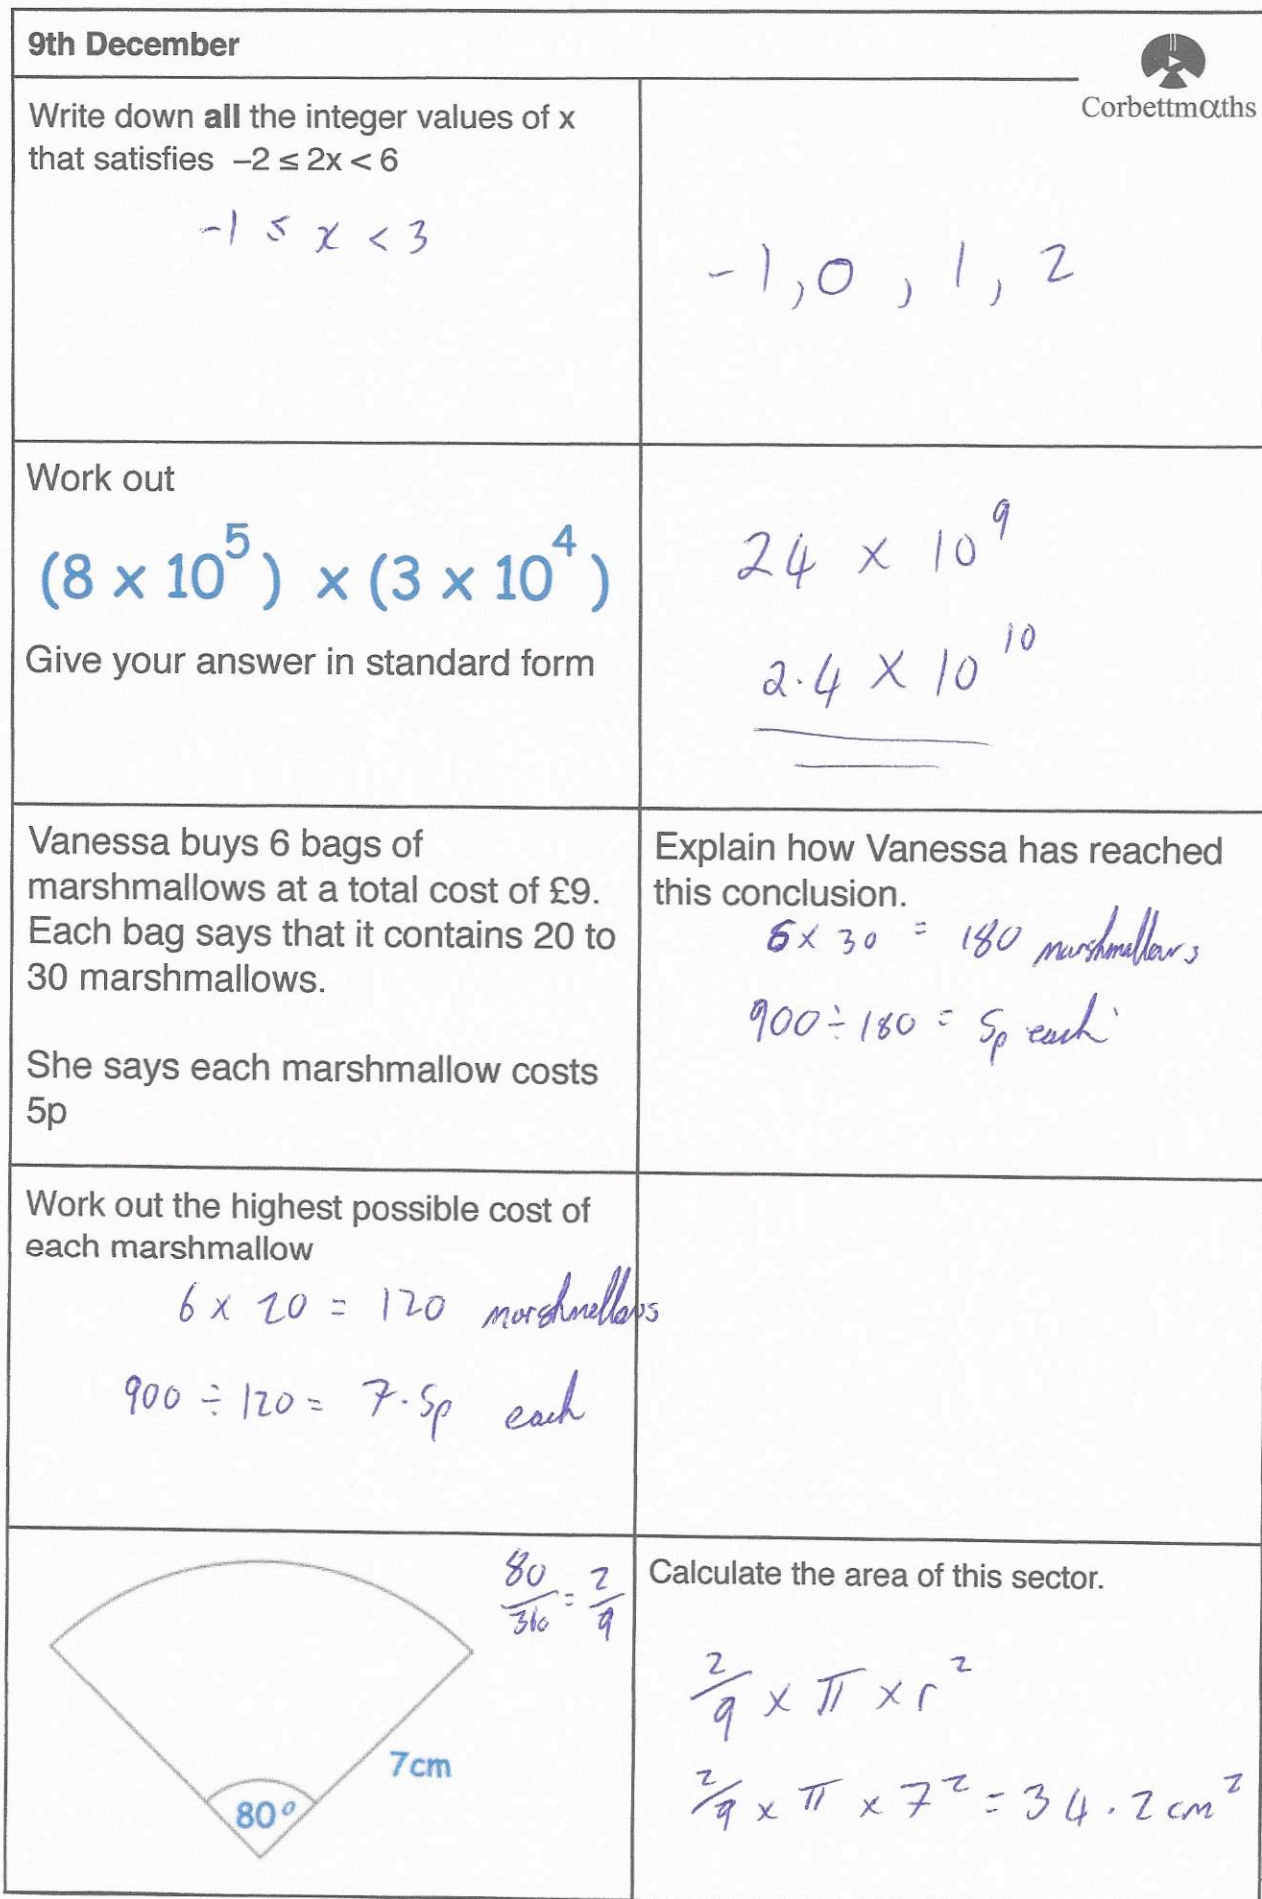 9th December
Corbettmαths
Write down all the integer values of x
that satisfies −2 ≤ 2x < 6
-1 ≤ x < 3
-1, 0, 1, 2
Work out
(8 x 10⁵) x (3 x 10⁴)
Give your answer in standard form
24 x 10⁹
2.4 x 10¹⁰
Vanessa buys 6 bags of
marshmallows at a total cost of £9.
Each bag says that it contains 20 to
30 marshmallows.
She says each marshmallow costs
5p
Explain how Vanessa has reached
this conclusion.
6 x 30 = 180 marshmallows
900 ÷ 180 = 5p each
Work out the highest possible cost of
each marshmallow
6 x 20 = 120 marshmellows
900 ÷ 120 = 7.5p each
80/360 = 2/9
7cm
80°
Calculate the area of this sector.
2/9 x π x r²
2/9 x π x 7² = 34.2 cm²